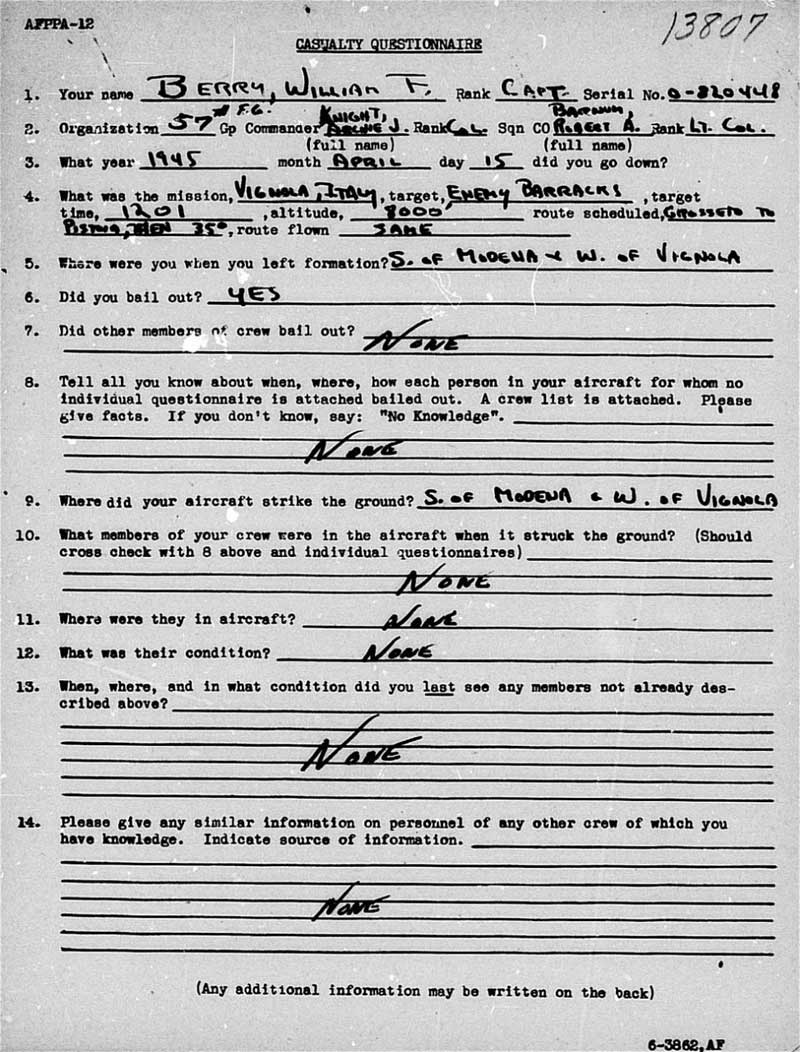 AFPPA-12
13807
CASUALTY QUESTIONNAIRE
1. Your name BERRY, WILLIAM F. Rank CAPT. Serial No. O-820448
2. Organization 57th F.G. Gp Commander KNIGHT, ARCHIE J. Rank COL. Sqn CO BARNUM, ROBERT A. Rank LT. COL.
(full name) (full name)
3. What year 1945 month APRIL day 15 did you go down?
4. What was the mission, VIGNOLA, ITALY, target, ENEMY BARRACKS, target
time, 1201, altitude, 8000, route scheduled, GROSSETO TO
PISTOIA, THEN 35°, route flown SAME
5. Where were you when you left formation? S. OF MODENA & W. OF VIGNOLA
6. Did you bail out? YES
7. Did other members of crew bail out?
NONE
8. Tell all you know about when, where, how each person in your aircraft for whom no
individual questionnaire is attached bailed out. A crew list is attached. Please
give facts. If you don't know, say: "No Knowledge".
NONE
9. Where did your aircraft strike the ground? S. OF MODENA & W. OF VIGNOLA
10. What members of your crew were in the aircraft when it struck the ground? (Should
cross check with 8 above and individual questionnaires)
NONE
11. Where were they in aircraft? NONE
12. What was their condition? NONE
13. When, where, and in what condition did you last see any members not already des-
cribed above?
NONE
14. Please give any similar information on personnel of any other crew of which you
have knowledge. Indicate source of information.
NONE
(Any additional information may be written on the back)
6-3862,AF